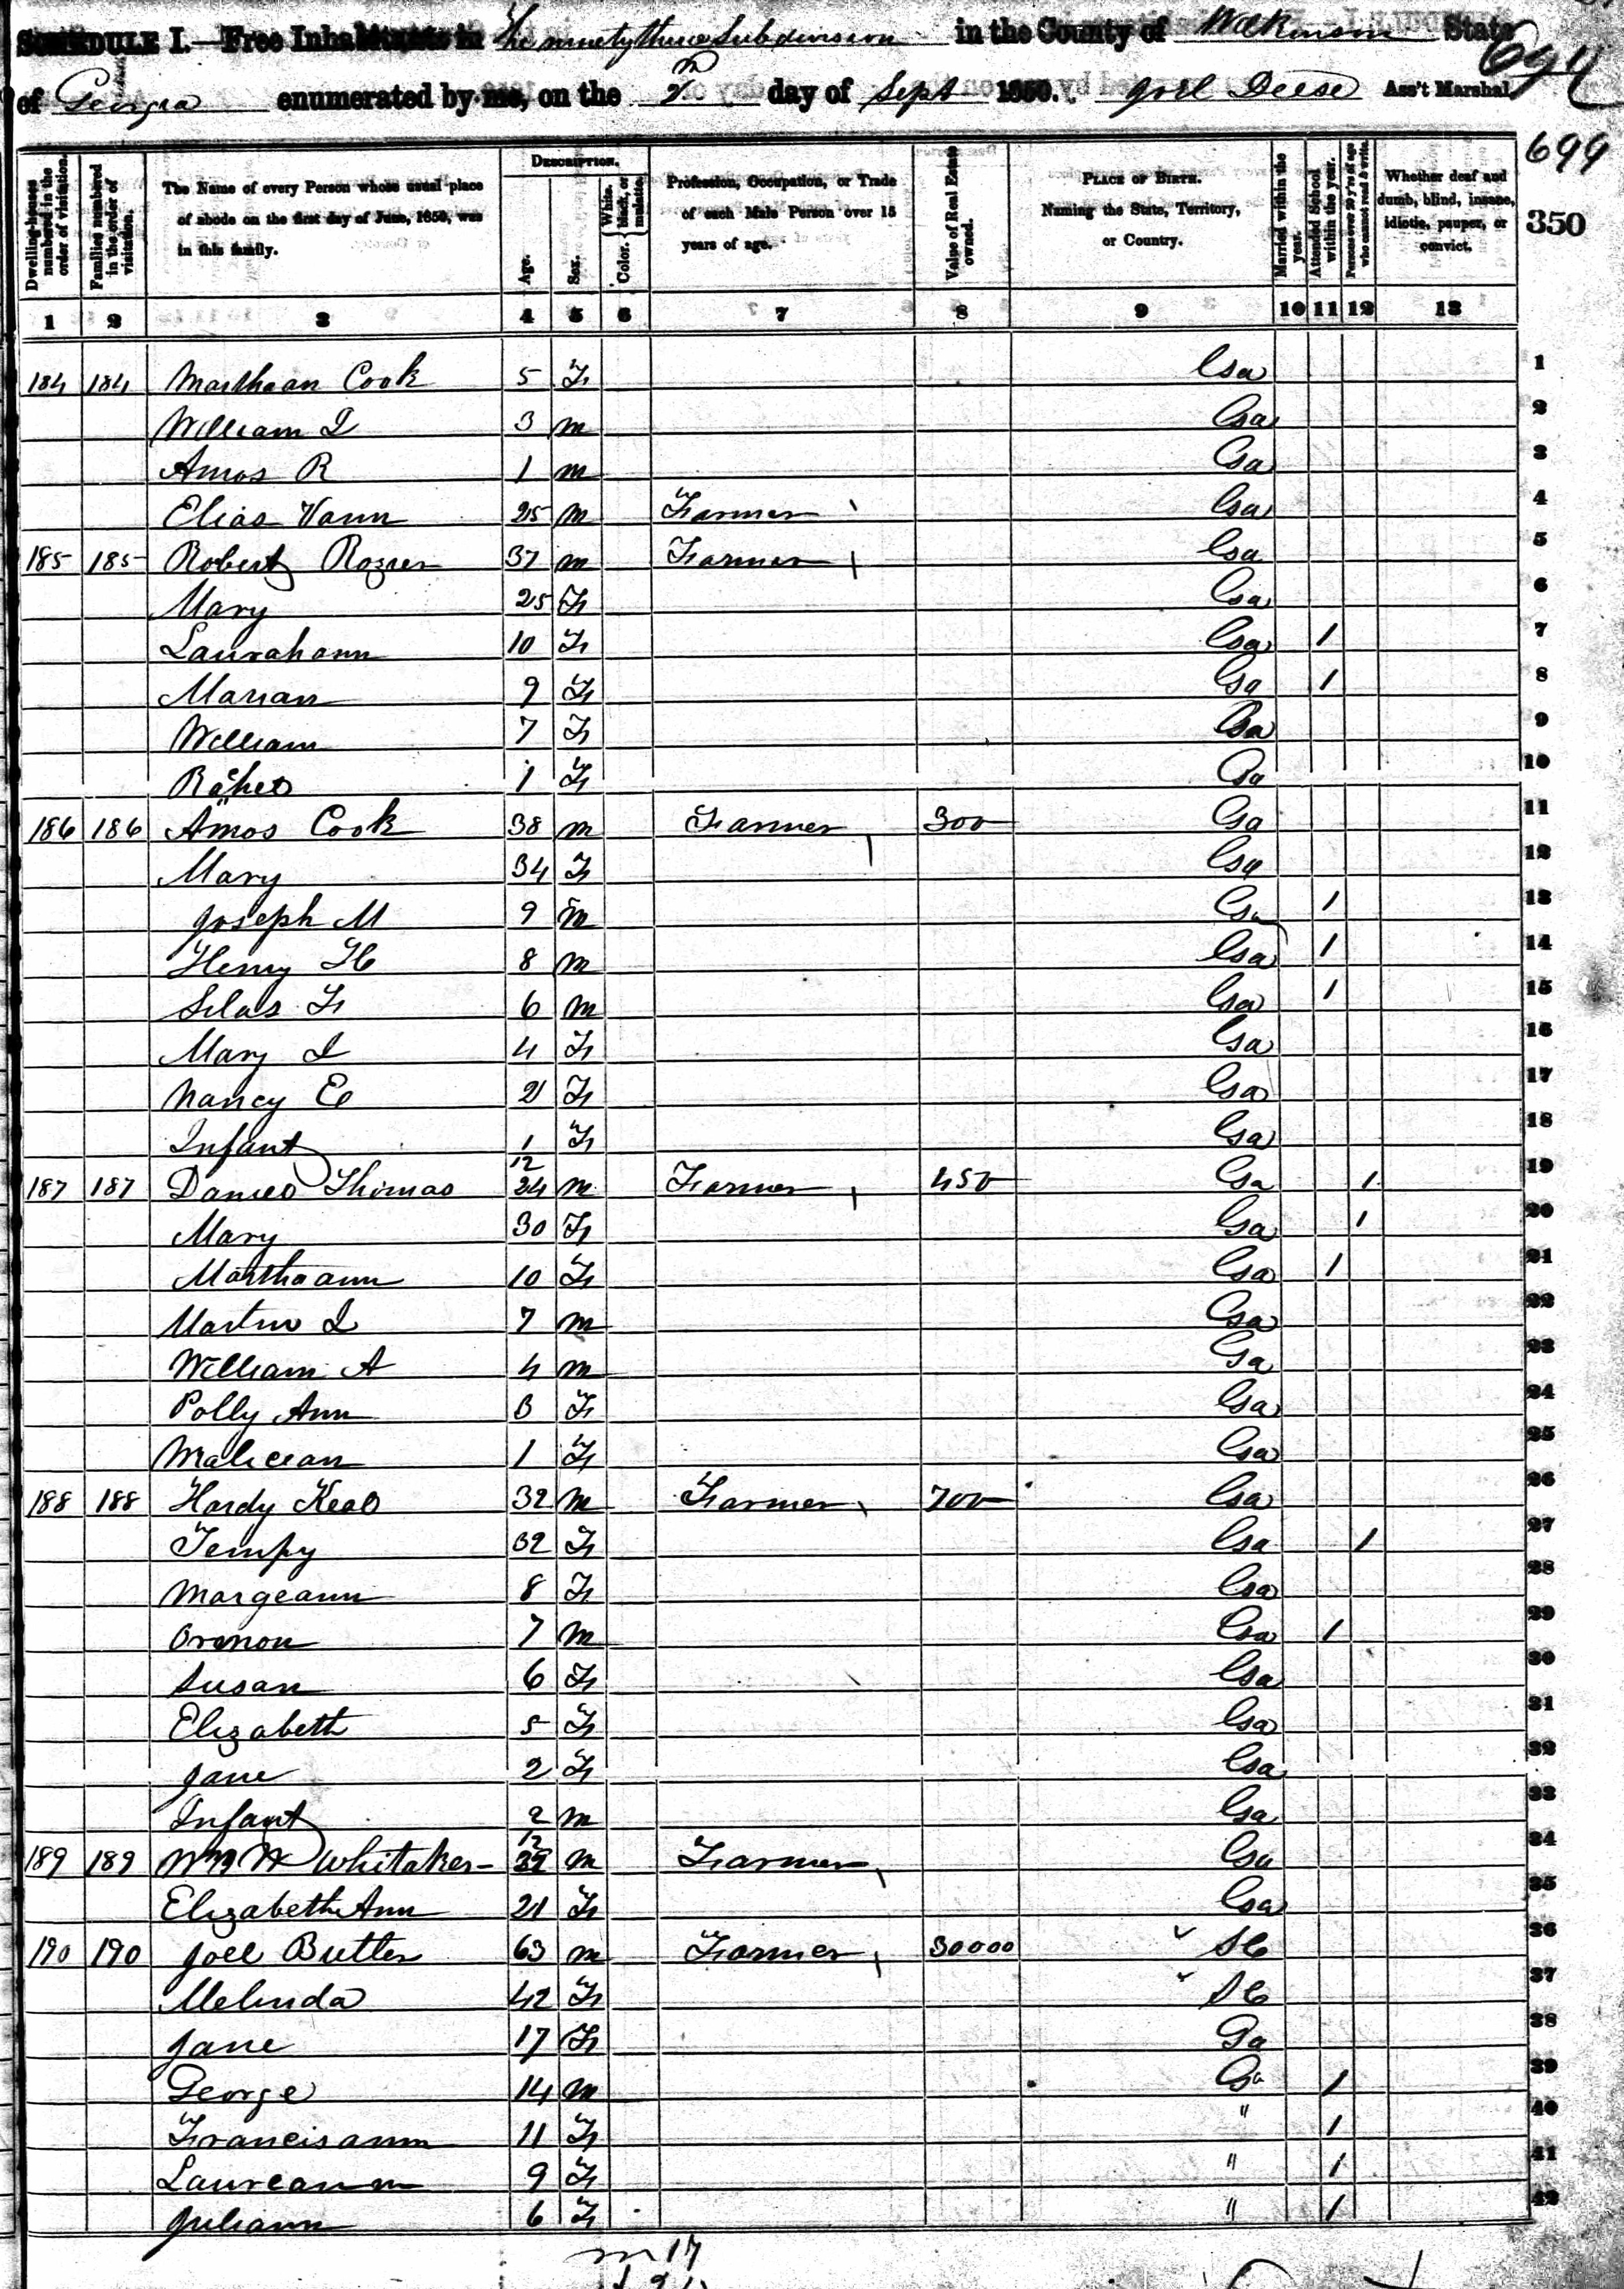 SCHEDULE I.—Free Inhabitants in The ninety third Subdivision in the County of Wilkinson State
694
of Georgia enumerated by me, on the 2 day of Sept 1850. Joel Deese Ass't Marshal.
699
350
Dwelling-houses numbered in the order of visitation.
Families numbered in the order of visitation.
The Name of every Person whose usual place of abode on the first day of June, 1850, was in this family.
DESCRIPTION.
Age.
Sex.
Color. White, black, or mulatto.
Profession, Occupation, or Trade of each Male Person over 15 years of age.
Value of Real Estate owned.
PLACE OF BIRTH. Naming the State, Territory, or Country.
Married within the year.
Attended School within the year.
Persons over 20 y'rs of age who cannot read & write.
Whether deaf and dumb, blind, insane, idiotic, pauper, or convict.
1 2 3 4 5 6 7 8 9 10 11 12 13
184 184 Marthaan Cook 5 F Ga 1
William I 3 m Ga 2
Amos R 1 m Ga 3
Elias Vann 25 m Farmer Ga 4
185 185 Robert Rozier 37 m Farmer Ga 5
Mary 25 F Ga 6
Laurahann 10 F Ga 1 7
Marian 9 F Ga 1 8
William 7 F Ga 9
Rachel 1 F Ga 10
186 186 Amos Cook 38 m Farmer 300 Ga 11
Mary 34 F Ga 12
Joseph M 9 m Ga 1 13
Henry H 8 m Ga 1 14
Silas F 6 m Ga 1 15
Mary I 4 F Ga 16
Nancy E 2 F Ga 17
Infant 1/12 F Ga 18
187 187 Daniel Thomas 24 m Farmer 450 Ga 1 19
Mary 30 F Ga 1 20
Marthaann 10 F Ga 1 21
Martin I 7 m Ga 22
William A 4 m Ga 23
Polly Ann 3 F Ga 24
Malician 1 F Ga 25
188 188 Hardy Keal 32 m Farmer 700 Ga 26
Tempy 32 F Ga 1 27
Margeann 8 F Ga 28
Oremon 7 m Ga 1 29
Susan 6 F Ga 30
Elizabeth 5 F Ga 31
Jane 2 F Ga 32
Infant 2/12 m Ga 33
189 189 Wm W Whitaker m Farmer Ga 34
Elizabeth Ann 21 F Ga 35
190 190 Joel Butler 63 m Farmer 30000 SC 36
Melinda 42 F SC 37
Jane 17 F Ga 38
George 14 m Ga 1 39
Francisann 11 F " 1 40
Laureann 9 F " 1 41
Juliann 6 F " 1 42
m 17